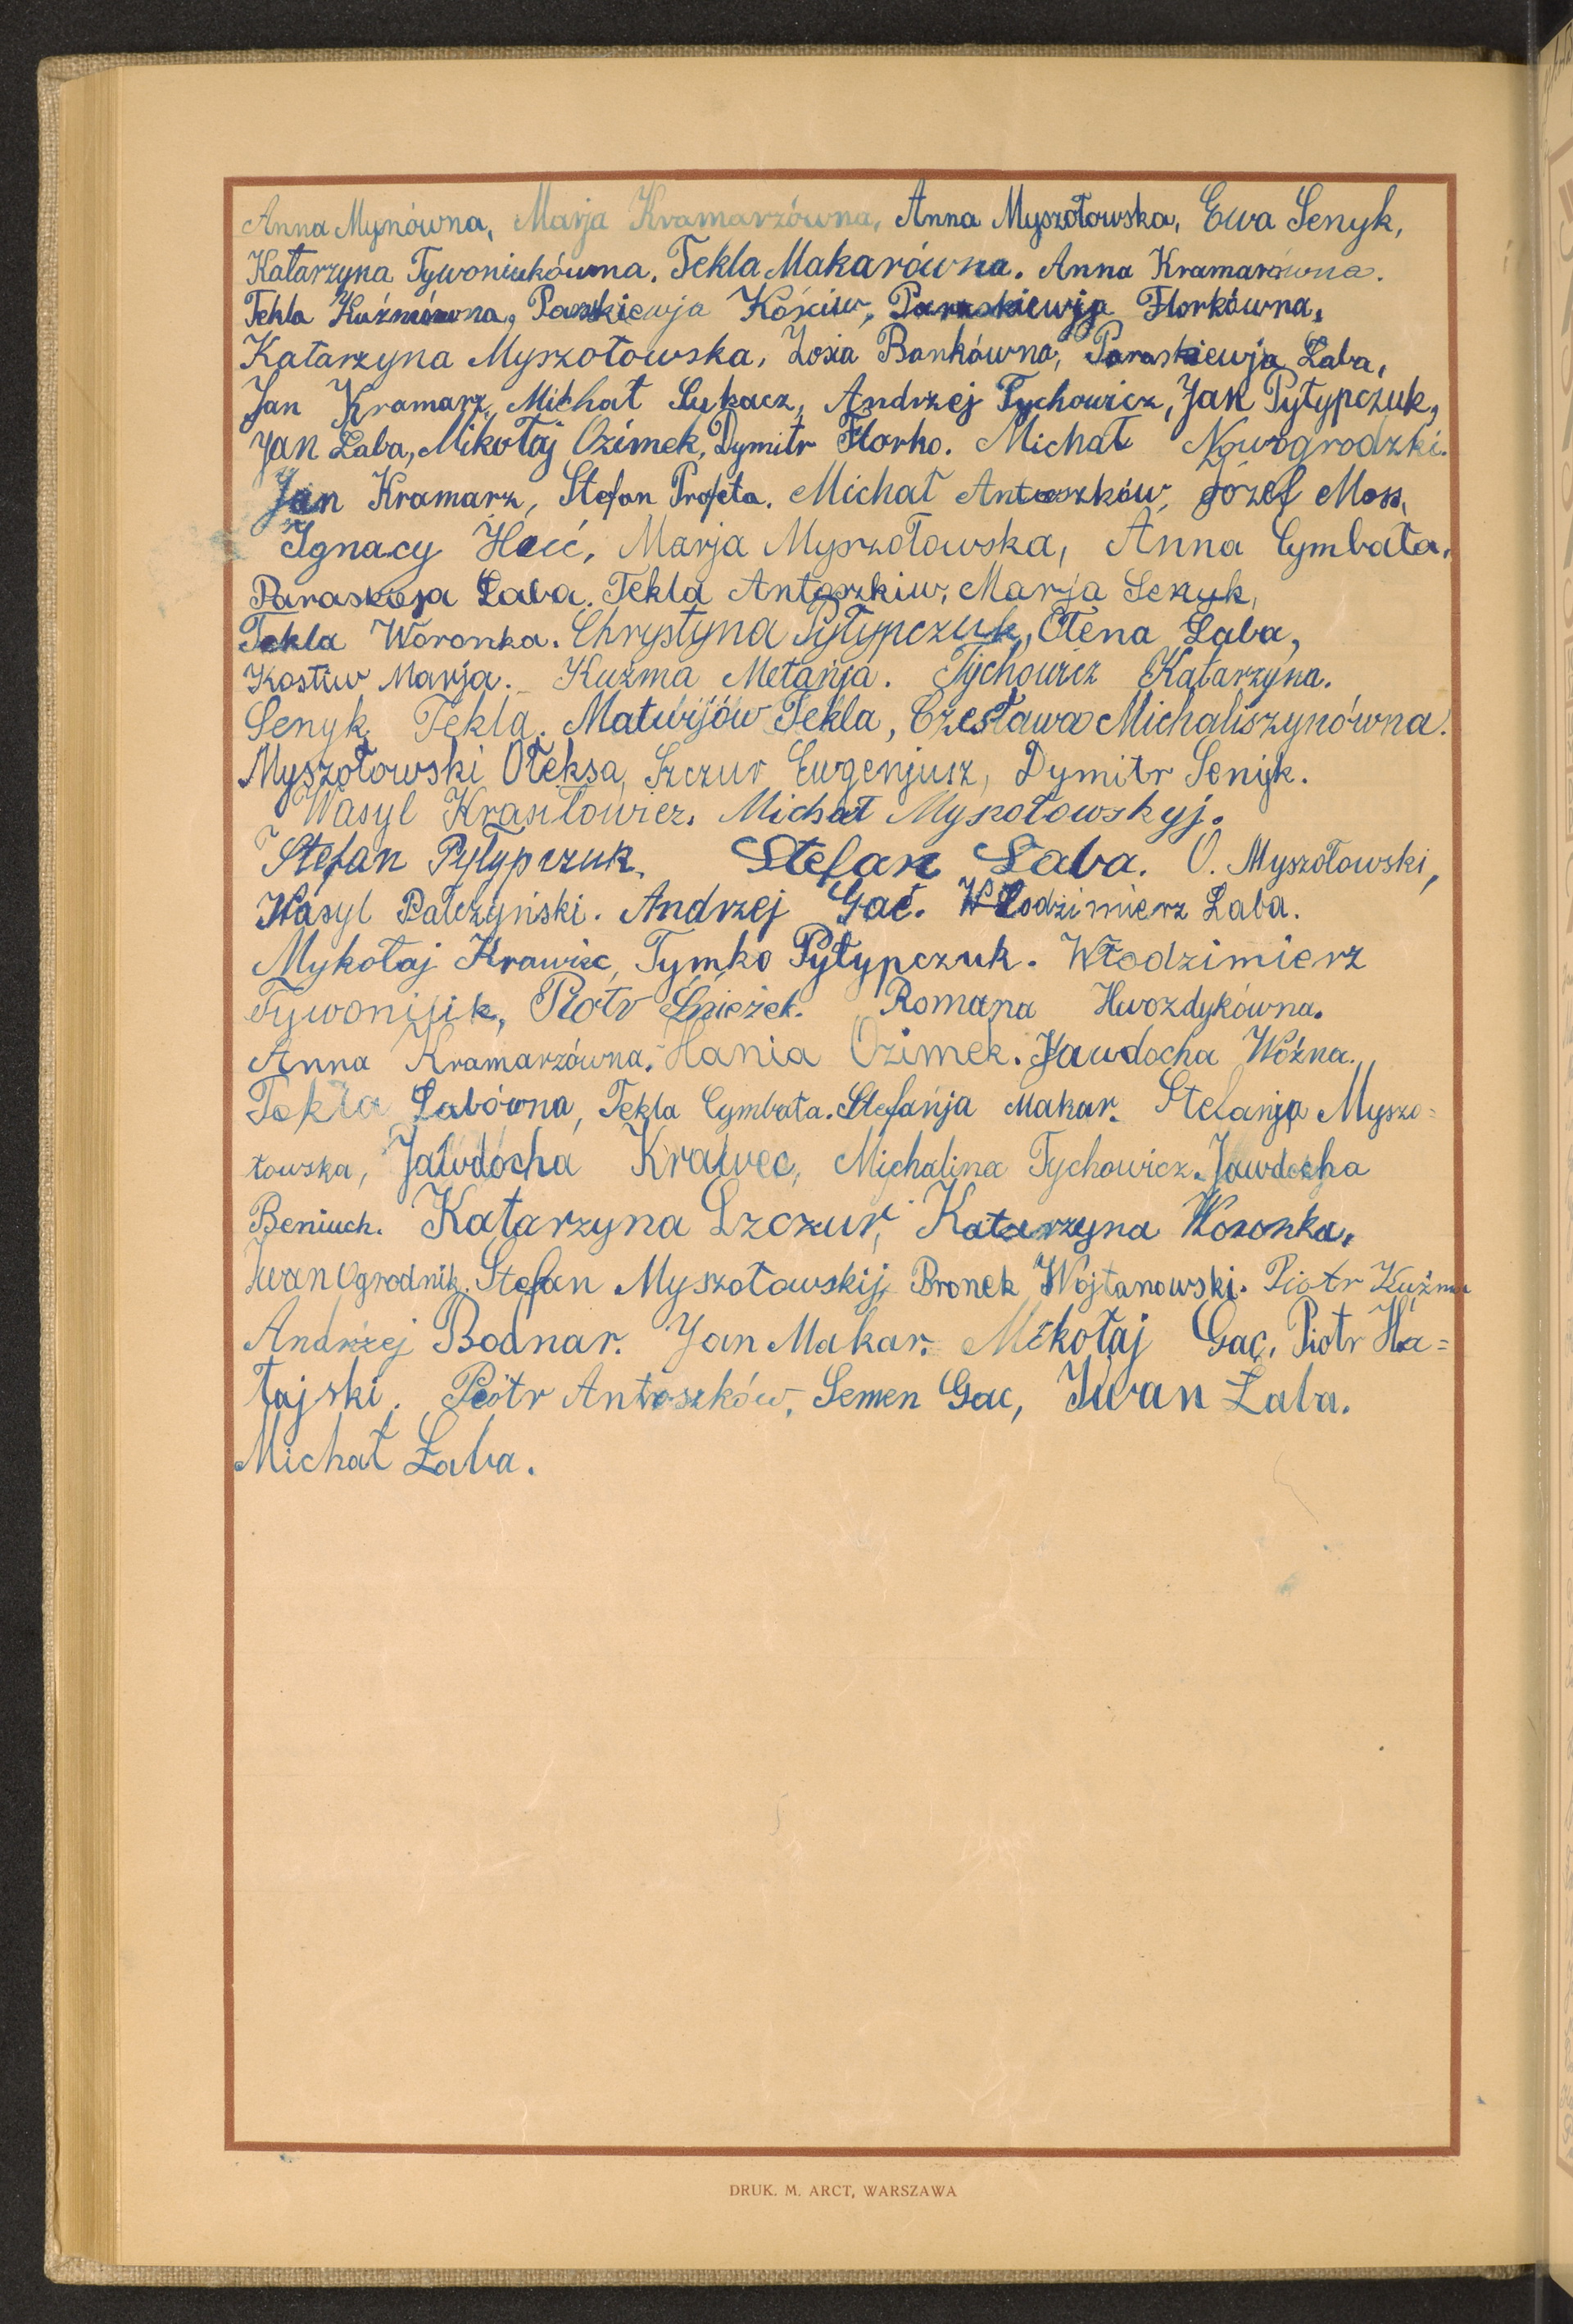 Anna Mynówna, Marja Kramarzówna, Anna Myszołowska, Ewa Senyk,
Katarzyna Tywoniukówna. Tekla Makarówna. Anna Kramarówna.
Tekla Kuźmówna, Paraskiewja Kościw, Paraskiewja Florkówna,
Katarzyna Myszołowska, Zosia Bankówna, Paraskiewja Łaba,
Jan Kramarz, Michał Łukacz, Andrzej Tychowicz, Jan Pyłypczuk,
Jan Łaba, Mikołaj Ozimek, Dymitr Florko. Michał Nowogrodzki.
Jan Kramarz, Stefan Profeta. Michał Antoszków, Józef Moss,
Ignacy Hać, Marja Myszołowska, Anna Cymbała,
Paraskeja Łaba. Tekla Antoszkiw, Marja Senyk,
Tekla Woronka. Chrystyna Pyłypczuk, Ołena Łaba,
Kostiw Marja. Kuźma Metańja. Tychowicz Katarzyna.
Senyk Tekla. Matwijów Tekla, Czesława Michaliszynówna.
Myszołowski Ołeksa, Szczur Eugenjusz, Dymitr Senyk.
Wasyl Krasiłowicz. Michał Myszołowskyj.
Stefan Pyłypczuk. Stefan Łaba. O. Myszołowski,
Wasyl Palczyński. Andrzej Gać. Włodzimierz Łaba.
Mykołaj Krawiec, Tymko Pyłypczuk. Włodzimierz
Tywonijik, Piotr Śnieżek. Romana Hwozdykówna.
Anna Kramarzówna. Hania Ozimek. Jawdocha Woźna.
Tekla Łabówna, Tekla Cymbała. Stefańja Makar. Stefanja Myszo=
łowska, Jawdocha Krawec, Michalina Tychowicz. Jawdocha
Beniuch. Katarzyna Szczur, Katarzyna Woronka,
Iwan Ogrodnik. Stefan Myszołowskij, Bronek Wojtanowski. Piotr Kuźma
Andrzej Bodnar. Jan Makar. Mikołaj Gac, Piotr Ha=
łajski. Piotr Antoszków, Semen Gac, Iwan Łaba.
Michał Łaba.
DRUK. M. ARCT, WARSZAWA